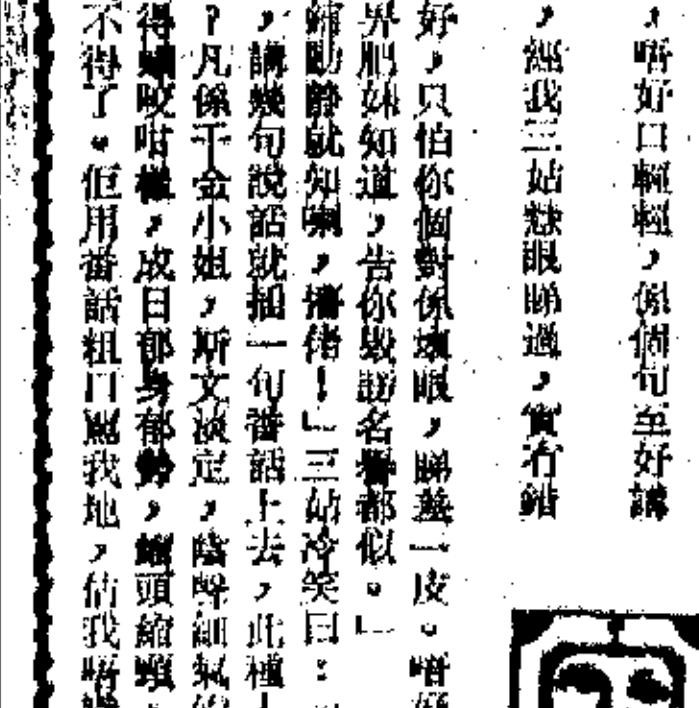 ，唔好口輕輕，係個句至好講
，經我三姑對眼睇過，實冇錯
好，只怕你個對係壞眼，睇差一皮。唔好
界肥妹知道，告你毀謗名譽都似。」
舖動靜就知喇，播佬！」三姑冷笑曰：
，講幾句說話就插一句番話上去，此種
？凡係千金小姐，斯文淡定，陰聲細氣
得蟻咬咁樣，成日郁身郁勢，縮頭縮頸
不得了。但用番話粗口鬧我地，估我唔